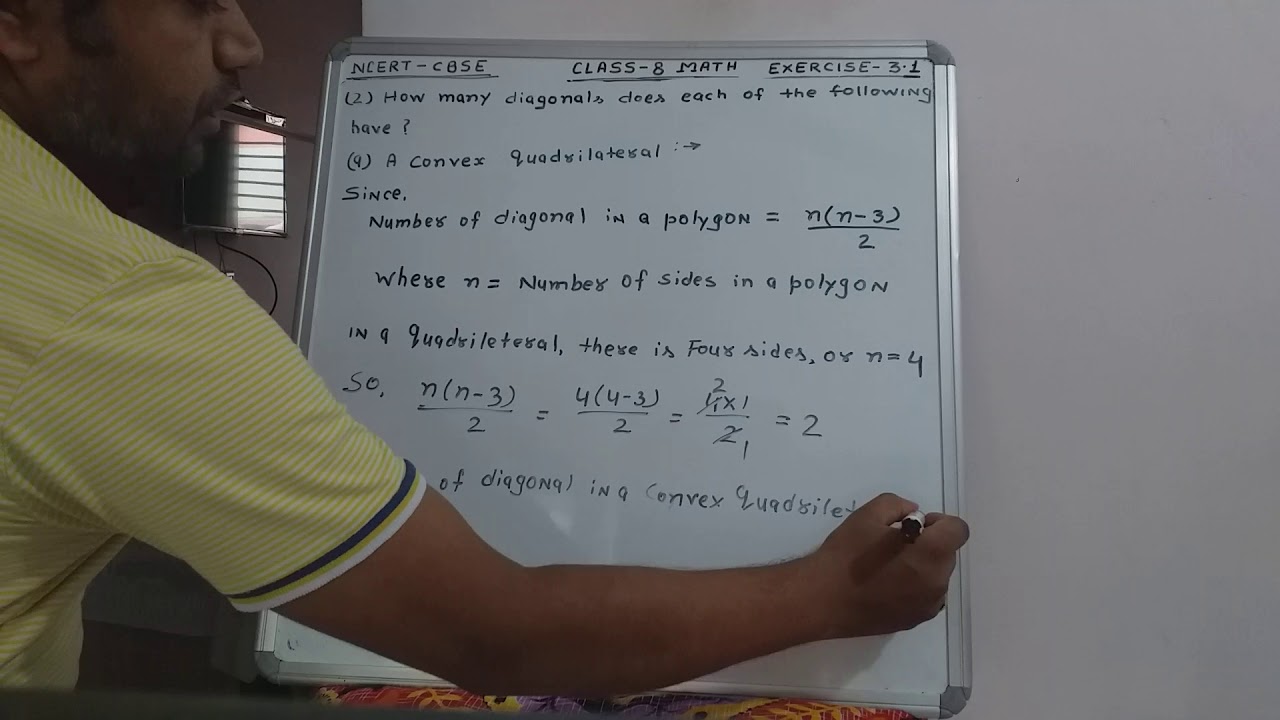 NCERT-CBSE CLASS-8 MATH EXERCISE-3.1
(2) How many diagonals does each of the following
have ?
(a) A convex quadrilateral :→
Since,
Number of diagonal in a polygon = n(n-3)/2
Where n = Number of sides in a polygon
IN a quadrileteral, there is Four sides, or n=4
So, n(n-3)/2 = 4(4-3)/2 = 4×1/2 = 2
of diagonal in a Convex Quadrilet